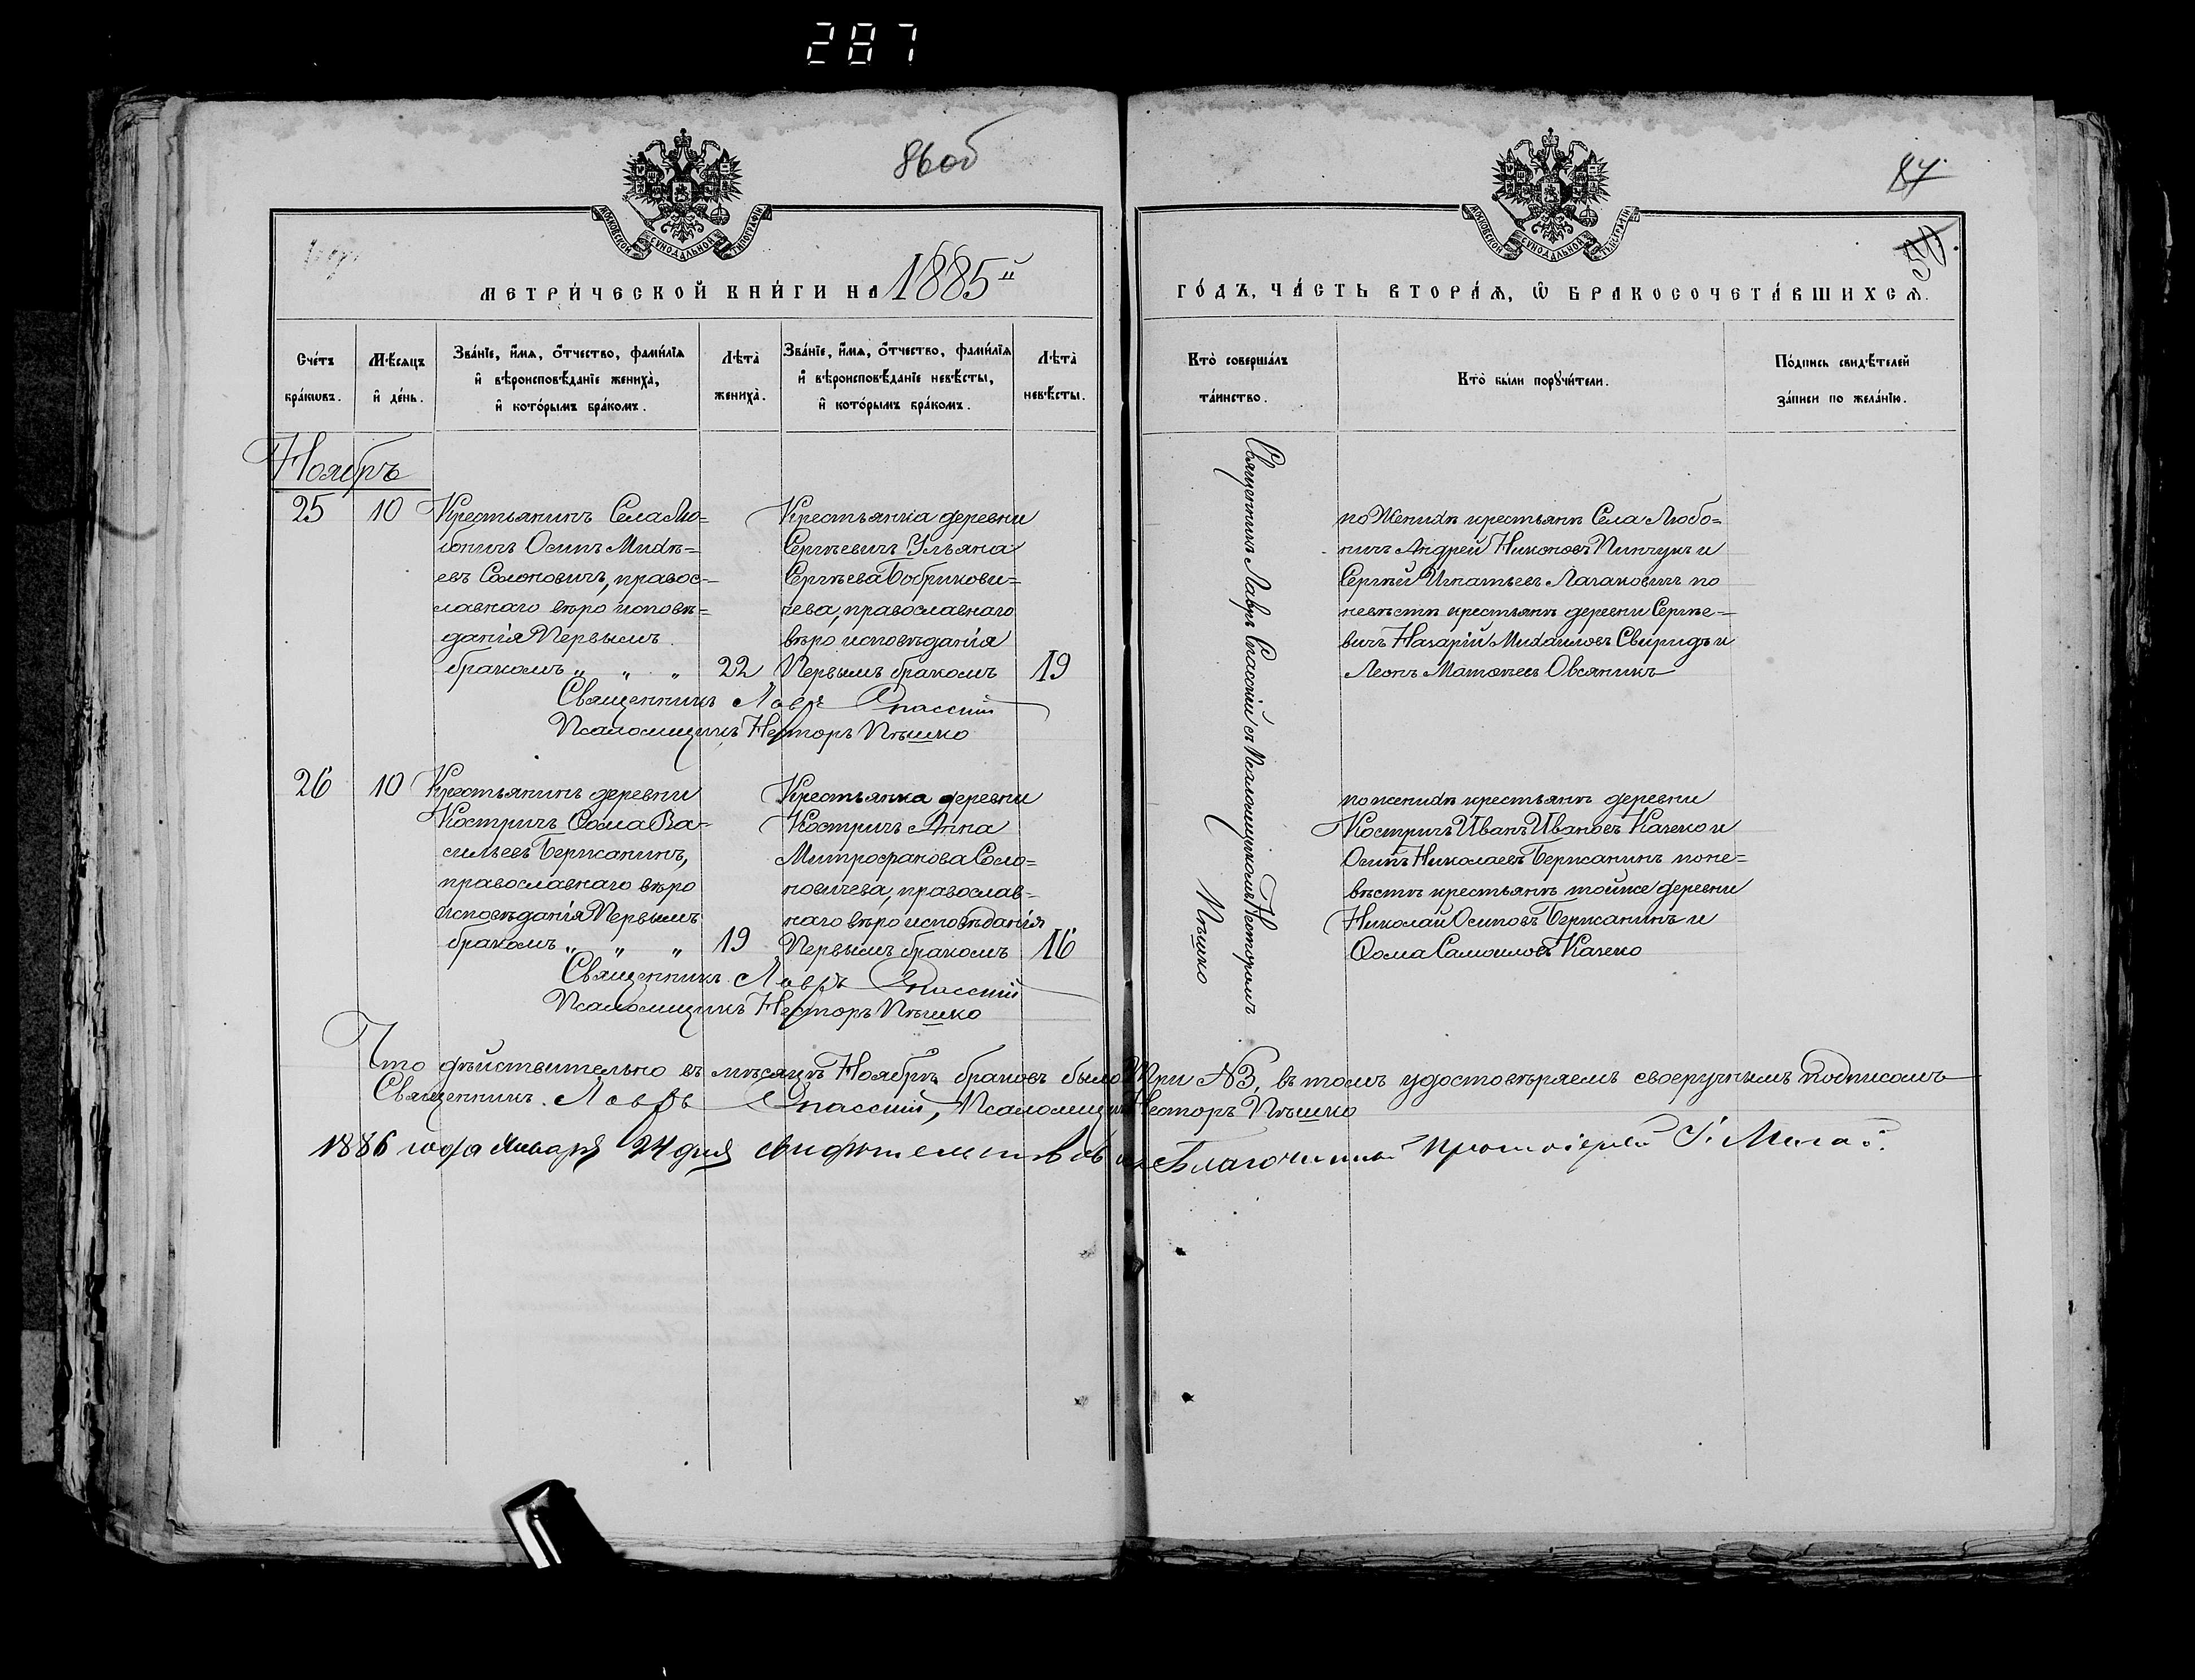 287
86об
87
МОСКОВСКОЙ СѴНОДАЛЬНОЙ ТИПОГРАФІИ
МОСКОВСКОЙ СѴНОДАЛЬНОЙ ТИПОГРАФІИ
МЕТРИ́ЧЕСКОЙ КНИ́ГИ НА 1885й
ГО́ДЪ, ЧА́СТЬ ВТОРА́Ѧ, Ѿ БРАКОСОЧЕТА́ВШИХСѦ.
Сче́тъ бра́кѡвъ.
Мѣ́сѧцъ и҆ де́нь.
Зва́нїе, и҆́мѧ, ѻ҆́тчество, фами́лїѧ и҆ вѣроисповѣ́данїе жениха̀, и҆ кото́рымъ бра́комъ.
Лѣта̀ жениха̀.
Зва́нїе, и҆́мѧ, ѻ҆́тчество, фами́лїѧ и҆ вѣроисповѣ́данїе невѣ́сты, и҆ кото́рымъ бра́комъ.
Лѣта̀ невѣ́сты.
Кто̀ соверша́лъ та́инство.
Кто̀ бы́ли порꙋчи́тели.
По́дпись свидѣ́телей за́писи по жела́нїю.
Ноябрь
25
10
Крестьянинъ Села Лю=
боничъ Осипъ Михѣ=
евъ Солоновичъ, правос=
лавнаго вѣро исповѣ=
данія Первымъ
бракомъ „ „ „
22
Крестьянка деревни
Сергѣевичъ Ульяна
Сергѣева Бобрикови=
чева, православнаго
вѣро исповѣданія
Первымъ бракомъ
19
Священникъ Лавръ Спасскій
Псаломщикъ Несторъ Пѣшко
Священникъ Лавръ Спасскій съ Псаломщикомъ Несторомъ
Пѣшко
по Женихѣ крестьянѣ Села Любо=
ничъ Андрей Никоновъ Пинчукъ и
Сергѣй Игнатьевъ Лагаковичъ по
невѣстѣ крестьянѣ деревни Сергѣе=
вичъ Назарій Михаиловъ Свиридъ и
Леонъ Матвеевъ Овсяникъ
26
10
Крестьянинъ деревни
Костричъ Ѳома Ва=
сильевъ Бержанинъ,
православнаго вѣро
исповѣданія Первымъ
бракомъ „ „ „
19
Крестьянка деревни
Костричъ Анна
Митрофанова Соло=
новичева, православ=
наго вѣро исповѣданія
Первымъ бракомъ
16
Священникъ Лавръ Спасскій
Псаломщикъ Несторъ Пѣшко
по женихѣ крестьянѣ деревни
Костричъ Иванъ Ивановъ Качено и
Осипъ Николаевъ Бержанинъ поне=
вѣстѣ крестьянѣ тойже деревни
Николай Осиповъ Бержанинъ и
Ѳома Самоиловъ Качено
Что дѣйствительно въ мѣсяцѣ Ноябрѣ браковъ было Три №3, въ томъ удостовѣряемъ своеручнымъ подписомъ
Священникъ Лавръ Спасскій, Псаломщикъ Несторъ Пѣшко
1886 года Января 24 дня свидѣтельствовалъ Благочинный Протоіерей